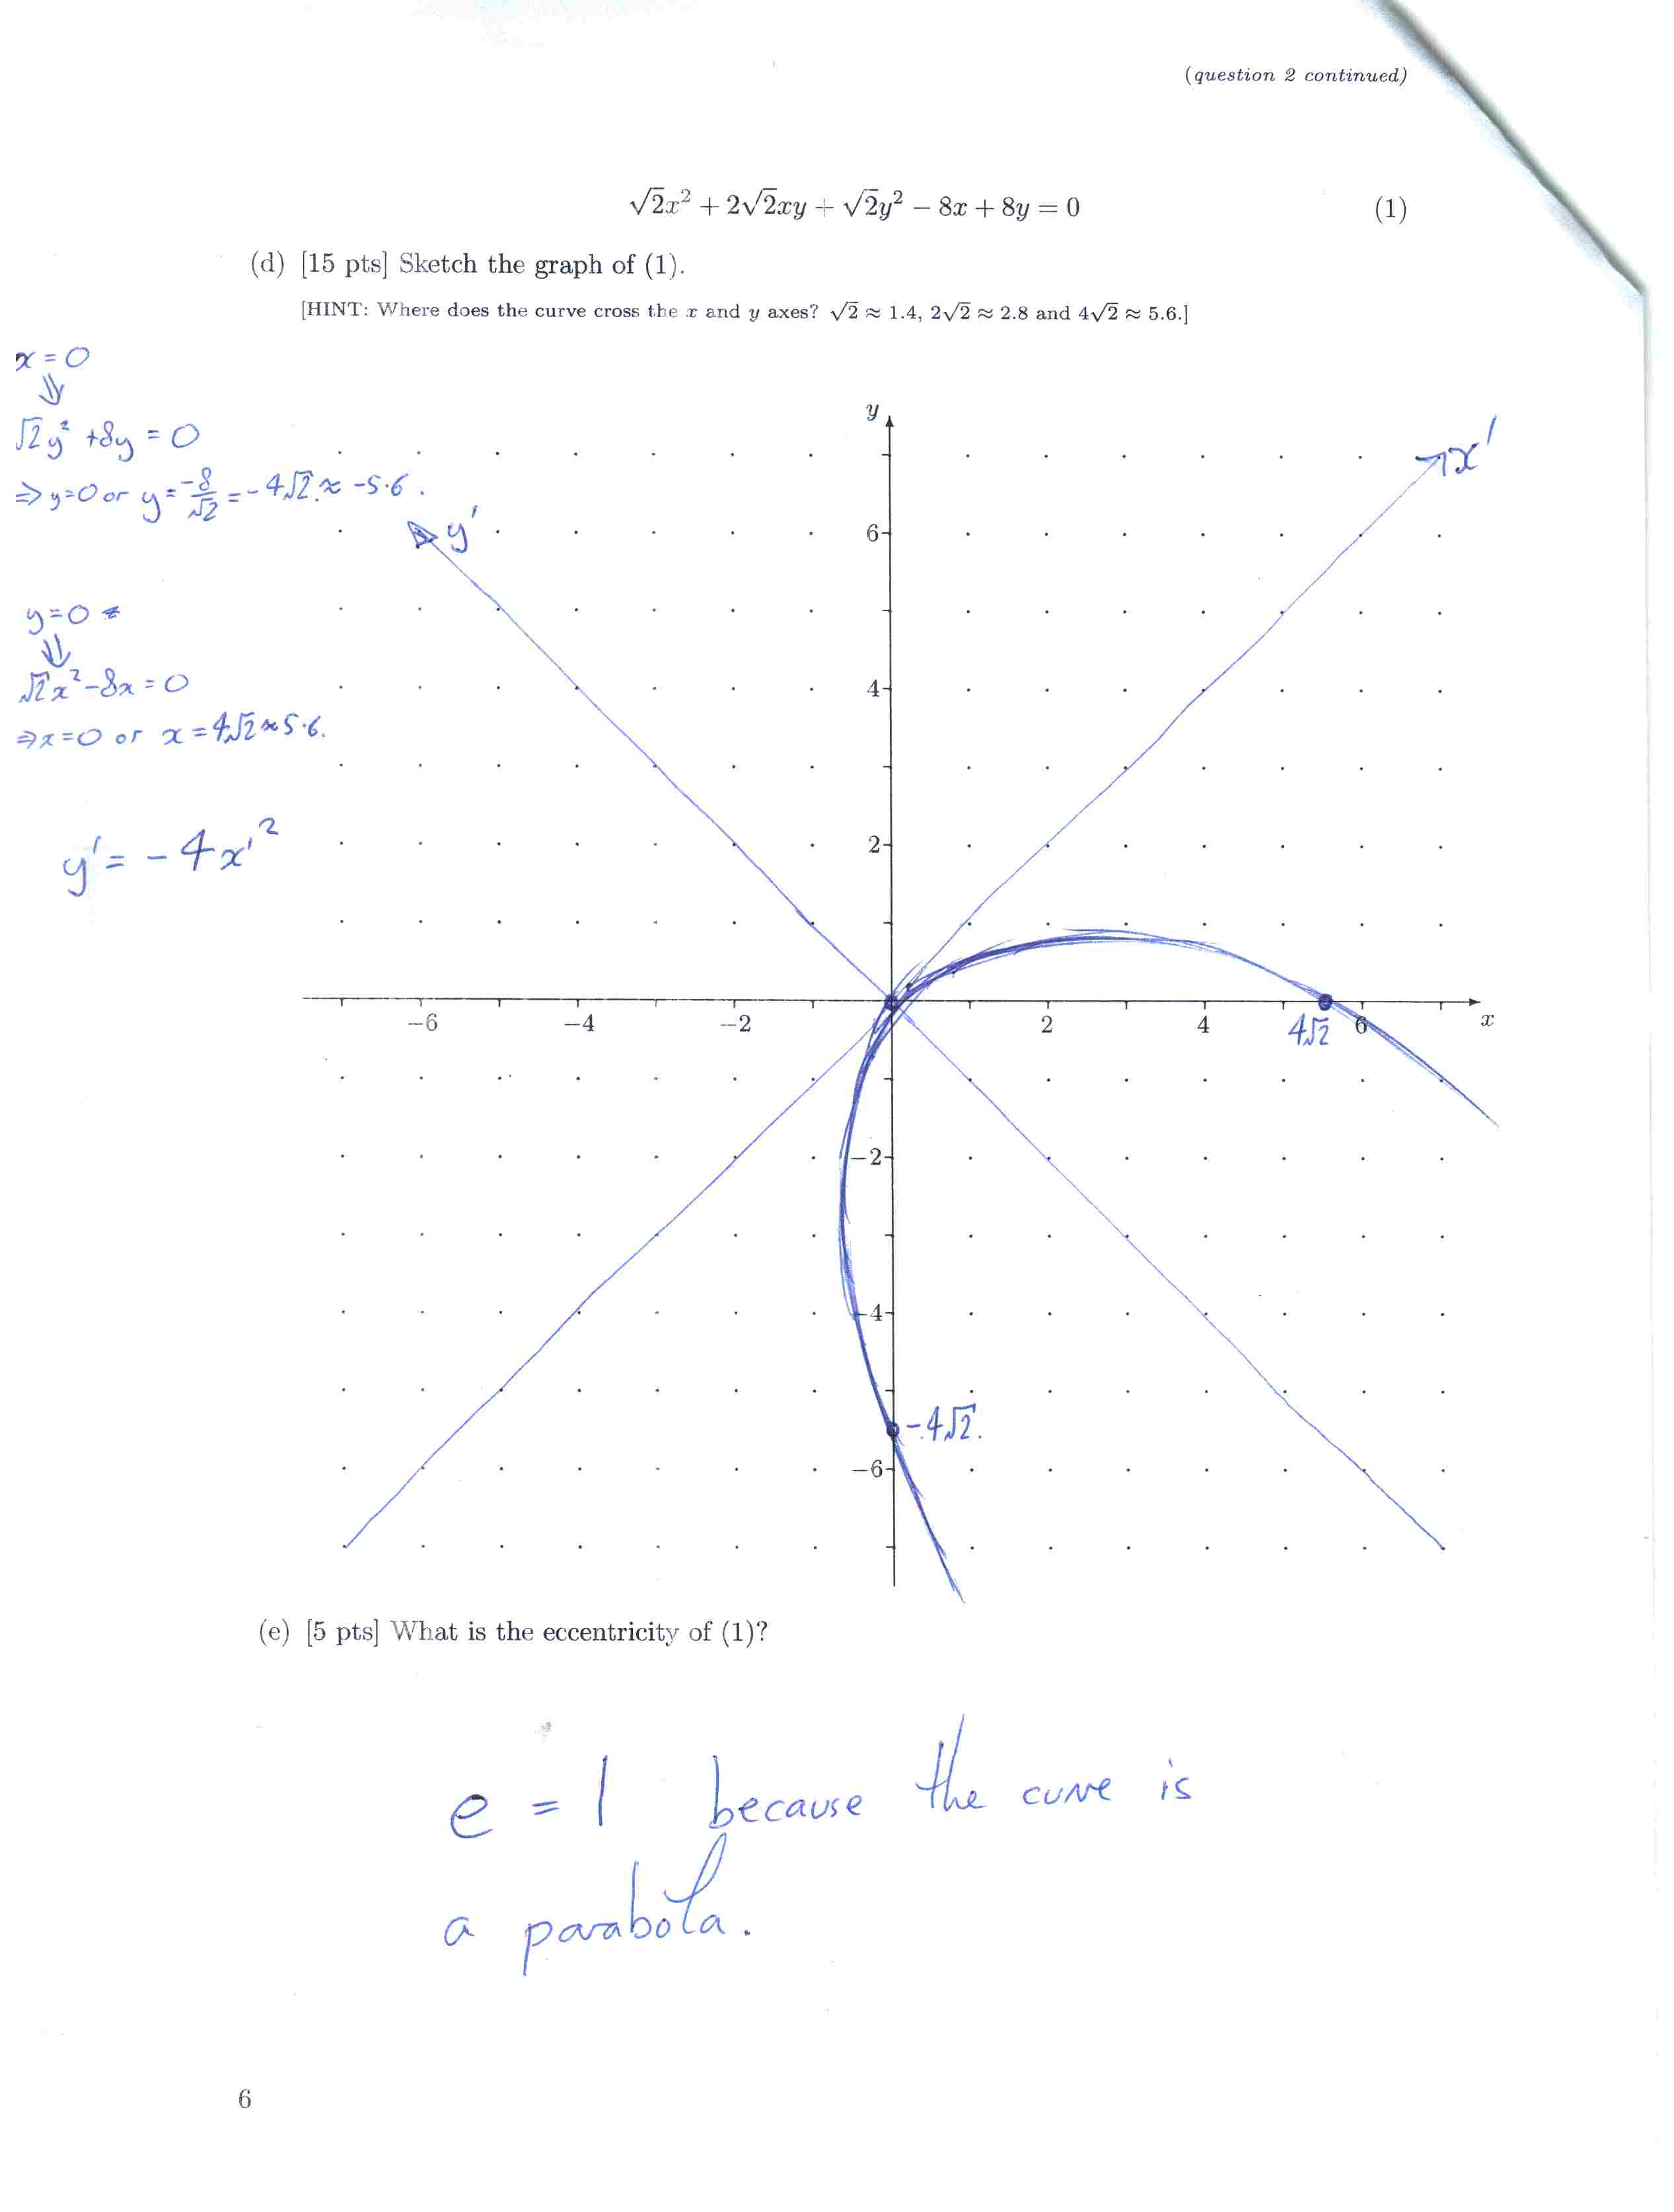 (question 2 continued)
√2x² + 2√2xy + √2y² − 8x + 8y = 0 (1)
(d) [15 pts] Sketch the graph of (1).
[HINT: Where does the curve cross the x and y axes? √2 ≈ 1.4, 2√2 ≈ 2.8 and 4√2 ≈ 5.6.]
x = 0
⇓
√2y² + 8y = 0
⇒ y=0 or y = -8/√2 = -4√2 ≈ -5.6.
y=0
⇓
√2x² - 8x = 0
⇒ x=0 or x = 4√2 ≈ 5.6.
y' = -4x'²
y
x'
y'
6
4
2
−6 −4 −2 2 4 6 x
4√2
−2
−4
-4√2.
−6
(e) [5 pts] What is the eccentricity of (1)?
e = 1 because the curve is
a parabola.
6